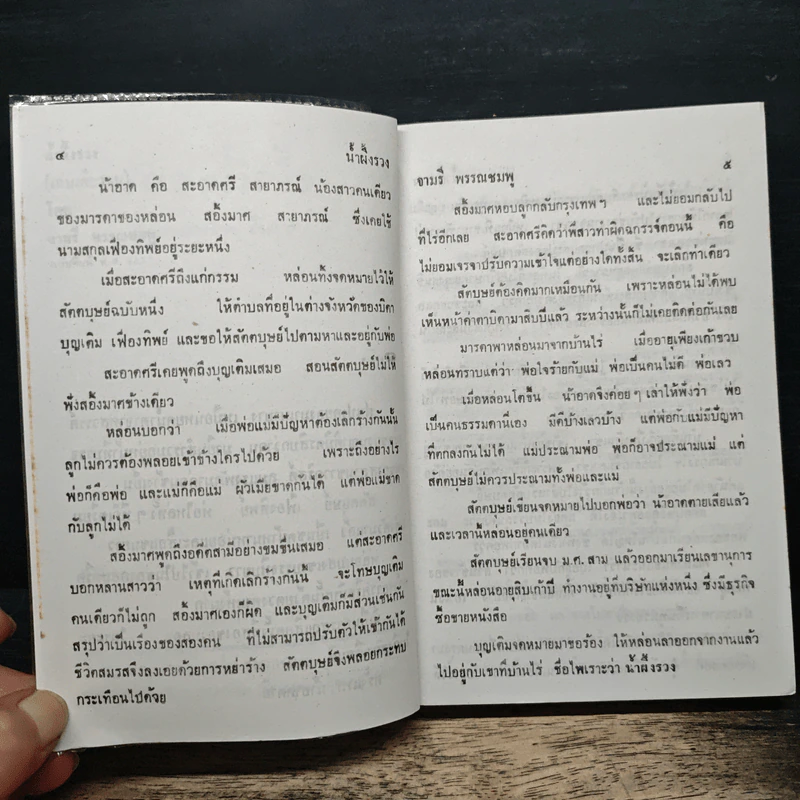 ๔
น้ำผึ้งรวง
น้าอาด คือ สะอาดศรี สายาภรณ์ น้องสาวคนเดียว
ของมารดาของหล่อน สอิ้งมาศ สายาภรณ์ ซึ่งเคยใช้
นามสกุลเฟื่องทิพย์อยู่ระยะหนึ่ง
เมื่อสะอาดศรีถึงแก่กรรม หล่อนทิ้งจดหมายไว้ให้
สัตตบุษย์ฉบับหนึ่ง ให้ตำบลที่อยู่ในต่างจังหวัดของบิดา
บุญเติม เฟื่องทิพย์ และขอให้สัตตบุษย์ไปตามหาและอยู่กับพ่อ
สะอาดศรีเคยพูดถึงบุญเติมเสมอ สอนสัตตบุษย์ไม่ให้
ฟังสอิ้งมาศข้างเดียว
หล่อนบอกว่า เมื่อพ่อแม่มีปัญหาต้องเลิกร้างกันนั้น
ลูกไม่ควรต้องพลอยเข้าข้างใครไปด้วย เพราะถึงอย่างไร
พ่อก็คือพ่อ และแม่ก็คือแม่ ผัวเมียขาดกันได้ แต่พ่อแม่ขาด
กับลูกไม่ได้
สอิ้งมาศพูดถึงอดีตสามีอย่างขมขื่นเสมอ แต่สะอาดศรี
บอกหลานสาวว่า เหตุที่เกิดเลิกร้างกันนั้น จะโทษบุญเติม
คนเดียวก็ไม่ถูก สอิ้งมาศเองก็ผิด และบุญเติมก็มีส่วนเช่นกัน
สรุปว่าเป็นเรื่องของสองคน ที่ไม่สามารถปรับตัวให้เข้ากันได้
ชีวิตสมรสจึงลงเอยด้วยการหย่าร้าง สัตตบุษย์จึงพลอยกระทบ
กระเทือนไปด้วย
จามรี พรรณชมพู
๕
สอิ้งมาศหอบลูกกลับกรุงเทพฯ และไม่ยอมกลับไป
ที่ไร่อีกเลย สะอาดศรีคิดว่าพี่สาวทำผิดฉกรรจ์ตอนนี้ คือ
ไม่ยอมเจรจาปรับความเข้าใจแต่อย่างใดทั้งสิ้น จะเลิกท่าเดียว
สัตบุษย์ต้องคิดมากเหมือนกัน เพราะหล่อนไม่ได้พบ
เห็นหน้าค่าตาบิดามาสิบปีแล้ว ระหว่างนั้นก็ไม่เคยติดต่อกันเลย
มารดาพาหล่อนมาจากบ้านไร่ เมื่ออายุเพียงเก้าขวบ
หล่อนทราบแต่ว่า พ่อใจร้ายกับแม่ พ่อเป็นคนไม่ดี พ่อเลว
เมื่อหล่อนโตขึ้น น้าอาดจึงค่อยๆ เล่าให้ฟังว่า พ่อ
เป็นคนธรรมดานี่เอง มีดีบ้างเลวบ้าง แต่พ่อกับแม่มีปัญหา
ที่ตกลงกันไม่ได้ แม่ประณามพ่อ พ่อก็อาจประณามแม่ แต่
สัตตบุษย์ไม่ควรประณามทั้งพ่อและแม่
สัตตบุษย์เขียนจดหมายไปบอกพ่อว่า น้าอาดตายเสียแล้ว
และเวลานี้หล่อนอยู่คนเดียว
สัตตบุษย์เรียนจบ ม.ศ. สาม แล้วออกมาเรียนเลขานุการ
ขณะนี้หล่อนอายุสิบเก้าปี ทำงานอยู่ที่บริษัทแห่งหนึ่ง ซึ่งมีธุรกิจ
ซื้อขายหนังสือ
บุญเติมจดหมายมาขอร้อง ให้หล่อนลาออกจากงานแล้ว
ไปอยู่กับเขาที่บ้านไร่ ชื่อไพเราะว่า น้ำผึ้งรวง